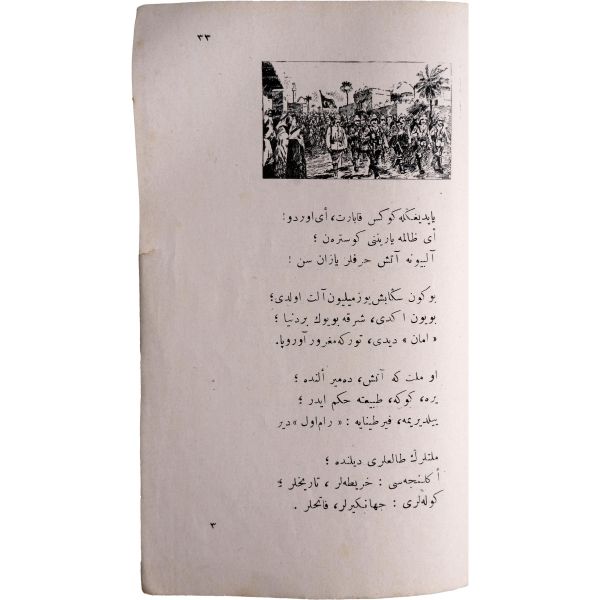 ٣٣
یاپدیغڭله كوكس قابارت، أی اوردو!
أی ظالمه یارینی كوسترەن ؛
آلبیونه آتش حرفلر یازان سن !
بوكون سڭا بش یوز میلیون آلت اولدی؛
بویون اكدی، شرقه بویوك بردنیا ؛
« امان » دیدی، توركه مغرور آوروپا.
او ملت كه آتش، دەمیر ألنده ؛
یره، كوكه، طبیعته حكم ایدر ؛
ییلدیریمه، فیرطینایه : « رام اول » دیر
ملتلرڭ طالعلری دیلنده ؛
أكلنجه‌سی : خریطه‌لر ، تاریخلر ؛
كوله‌لری : جهانكیرلر، فاتحلر .
٣